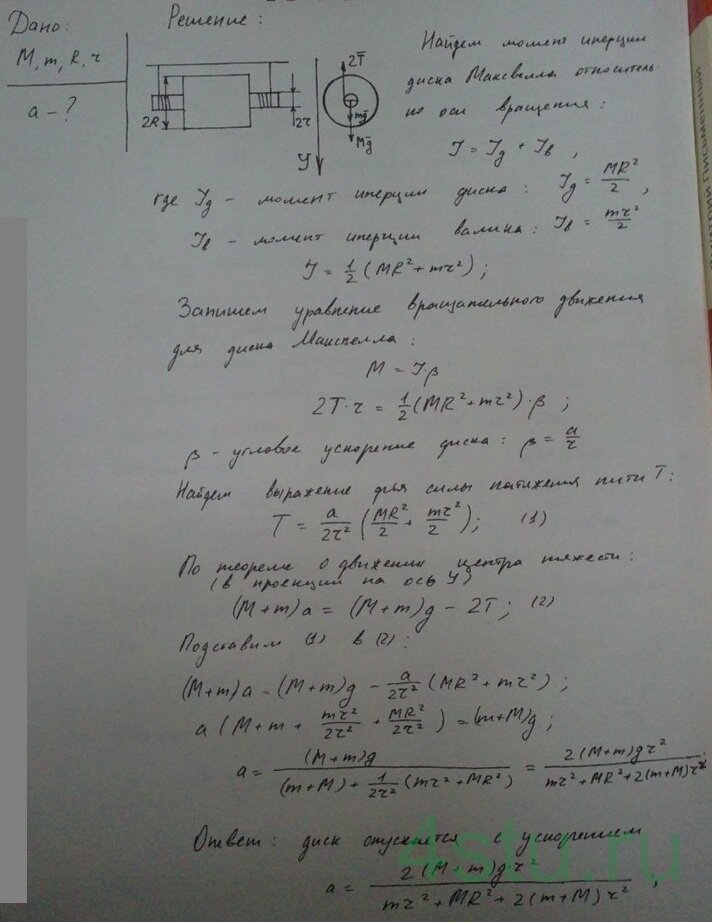 Дано:
M, m, R, r
a - ?
Решение:
2R
2r
У
2T̅
mg̅
Mg̅
Найдем момент инерции
диска Максвелла относитель-
но оси вращения:
J = Jд + Jв ,
где Jд - момент инерции диска: Jд = MR²/2 ,
Jв - момент инерции валика: Jв = mr²/2
J = 1/2 (MR² + mr²) ;
Запишем уравнение вращательного движения
для диска Максвелла:
M = J·β
2T·r = 1/2 (MR² + mr²)·β ;
β - угловое ускорение диска: β = a/r
Найдем выражение для силы натяжения нити T:
T = a/2r² (MR²/2 + mr²/2) ; (1)
По теореме о движении центра тяжести:
(в проекции на ось У)
(M+m)a = (M+m)g - 2T ; (2)
Подставим (1) в (2):
(M+m)a = (M+m)g - a/2r² (MR² + mr²) ;
a (M + m + mr²/2r² + MR²/2r²) = (m+M)g ;
a = (M+m)g / ((m+M) + 1/2r² (mr² + MR²)) = 2(M+m)gr² / (mr² + MR² + 2(m+M)r²)
Ответ: диск опускается с ускорением
a = 2(M+m)g·r² / (mr² + MR² + 2(m+M)r²) ,
4stu.ru